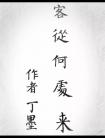 客從何處来
作者丁墨